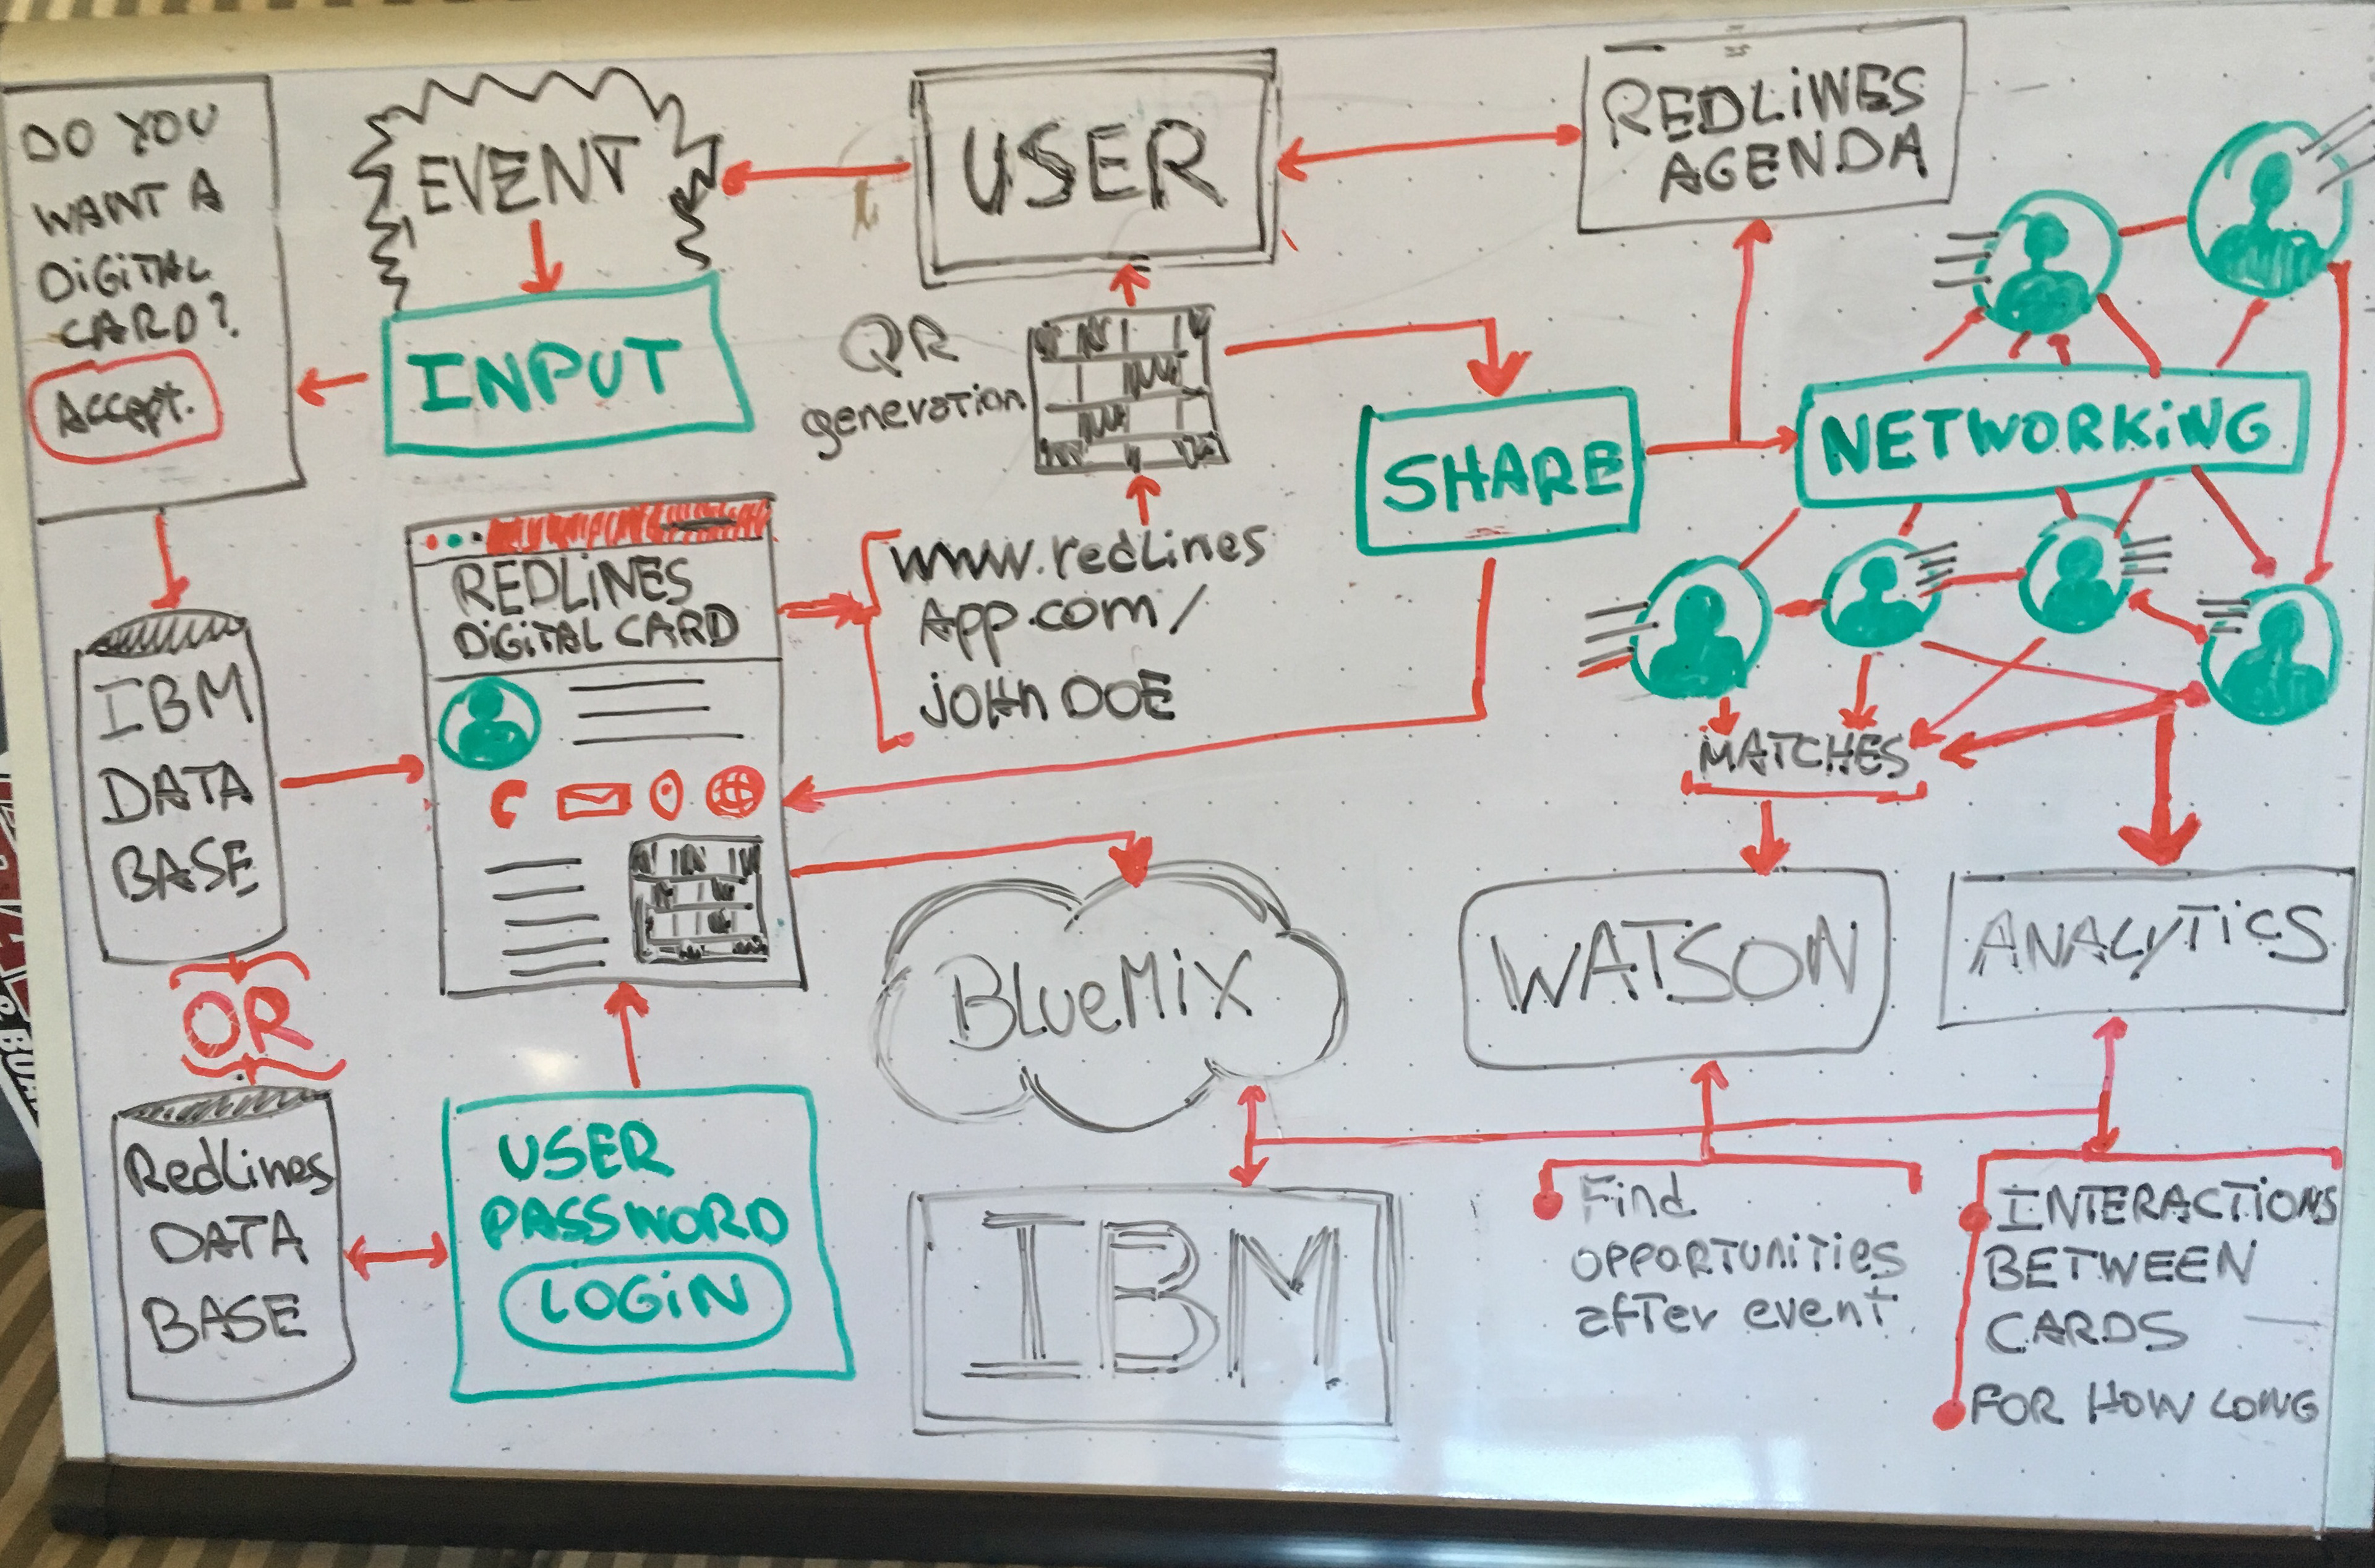 DO YOU
WANT A
DiGiTAL
CARD?
Accept.
EVENT
INPUT
USER
REDLiNES
AGENDA
QR
generation
SHARE
NETWORKiNG
IBM
DATA
BASE
REDLiNES
DiGiTAL CARD
www.redLines
App.com/
joHn DOE
MATCHES
OR
RedLines
DATA
BASE
USER
PASSWORD
LOGiN
BLueMiX
IBM
WATSON
ANALYTiCS
Find
opportunities
after event
INTERACTIONS
BETWEEN
CARDS
FOR HOW LONG